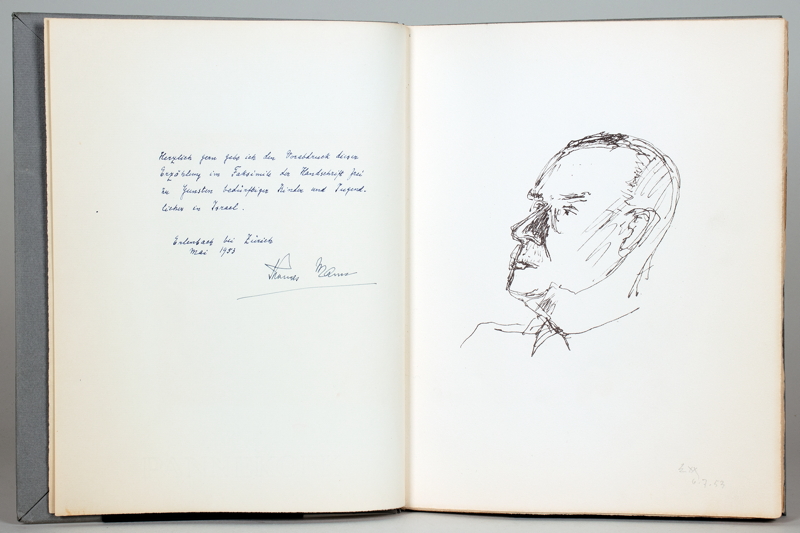 Herzlich gern gebe ich den Vorabdruck dieser
Erzählung im Faksimile der Handschrift frei
zu Gunsten bedürftiger Kinder und Jugend-
licher in Israel.
Erlenbach bei Zürich
Mai 1953
Thomas Mann
53